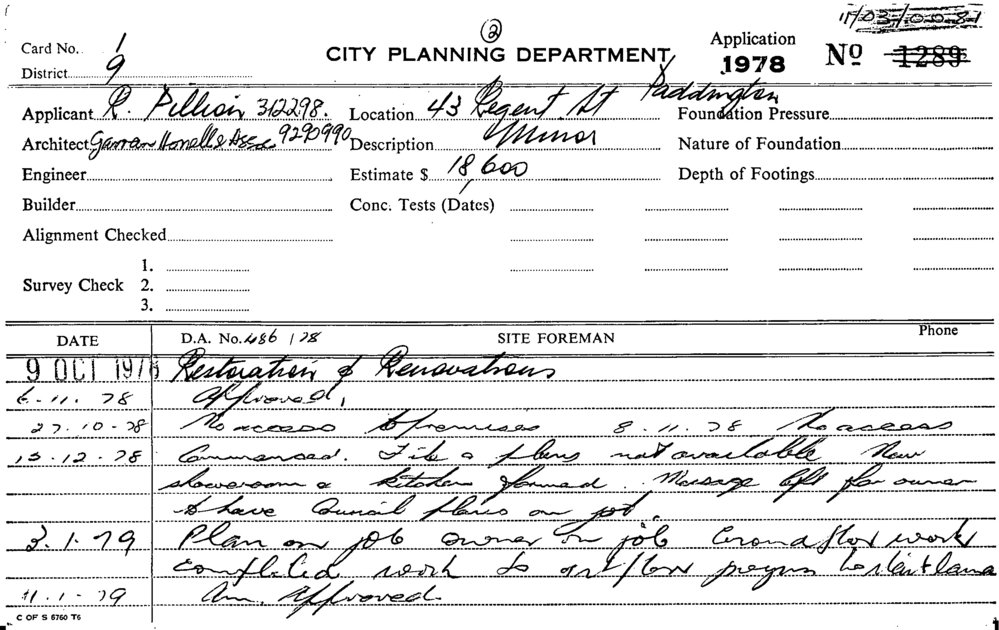 11/03/0081
②
Card No. 1 CITY PLANNING DEPARTMENT Application Nº 1289
District 9 1978
Applicant R. Pillion 312298. Location 43 Regent St Paddington Foundation Pressure
Architect Garran 9290990 Description Minor Nature of Foundation
Engineer Estimate $ 18,600 Depth of Footings
Builder Conc. Tests (Dates)
Alignment Checked
1.
Survey Check 2.
3.
DATE D.A. No. 486/78 SITE FOREMAN Phone
9 OCT 1978 Restoration & Renovations
6-11-78 Approved,
27-10-78 No access to premises 8-11-78 No access
13-12-78 Commenced. File & plans not available New
showroom & kitchen formed. Message left for owner
to have Council plans on job.
3.1.79 Plan on job owner on job Ground floor work
completed work to 1st floor
11.1.79 Am. Approved.
C OF S 6760 T6